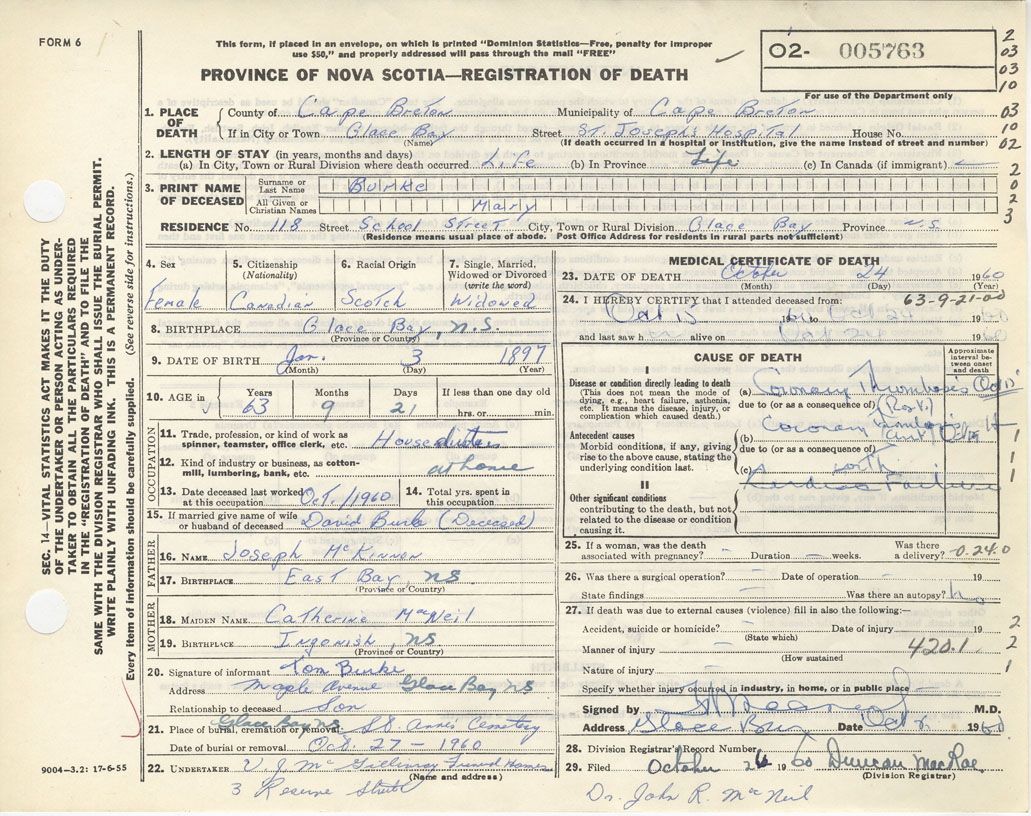 FORM 6
This form, if placed in an envelope, on which is printed "Dominion Statistics—Free, penalty for improper
use $50," and properly addressed will pass through the mail "FREE"
O2- 005763
PROVINCE OF NOVA SCOTIA—REGISTRATION OF DEATH
For use of the Department only
2
03
03
10
03
10
02
2
0
2
3
1. PLACE OF DEATH
County of Cape Breton Municipality of Cape Breton
If in City or Town Glace Bay Street St. Joseph's Hospital House No.
(Name) (If death occurred in a hospital or institution, give the name instead of street and number)
2. LENGTH OF STAY (in years, months and days)
(a) In City, Town or Rural Division where death occurred Life (b) In Province Life (c) In Canada (if immigrant) —
3. PRINT NAME OF DECEASED
Surname or Last Name Burke
All Given or Christian Names Mary
RESIDENCE No. 118 Street School Street City, Town or Rural Division Glace Bay Province N.S.
(Residence means usual place of abode. Post Office Address for residents in rural parts not sufficient)
4. Sex
Female
5. Citizenship
(Nationality)
Canadian
6. Racial Origin
Scotch
7. Single, Married,
Widowed or Divorced
(write the word)
Widowed
8. BIRTHPLACE Glace Bay, N.S.
(Province or Country)
9. DATE OF BIRTH Jan. 3 1897
(Month) (Day) (Year)
10. AGE in
Years Months Days If less than one day
63 9 21 hrs. or min.
OCCUPATION
11. Trade, profession, or kind of work as
spinner, teamster, office clerk, etc. House duties
12. Kind of industry or business, as cotton-
mill, lumbering, bank, etc. at home
13. Date deceased last worked
at this occupation. Oct./1960
14. Total yrs. spent in
this occupation.
15. If married give name of wife
or husband of deceased David Burke (Deceased)
FATHER
16. NAME Joseph McKinnon
17. BIRTHPLACE East Bay, NS
(Province or Country)
MOTHER
18. MAIDEN NAME Catherine MacNeil
19. BIRTHPLACE Ingonish, NS
(Province or Country)
20. Signature of informant Tom Burke
Address Maple Avenue Glace Bay NS
Relationship to deceased Son
Glace Bay NS
21. Place of burial, cremation or removal St. Anne's Cemetery
Date of burial or removal Oct. 27 - 1960
22. UNDERTAKER V. J. McGillivray Funeral Homes
(Name and address)
3 Reserve Street
MEDICAL CERTIFICATE OF DEATH
23. DATE OF DEATH October 24 1960
(Month) (Day) (Year)
63-9-21-00
24. I HEREBY CERTIFY that I attended deceased from:
Oct 15 1960 to Oct 24 1960
and last saw h alive on 1960
CAUSE OF DEATH
Approximate interval between onset and death
I
Disease or condition directly leading to death
(This does not mean the mode of
dying, e.g., heart failure, asthenia,
etc. It means the disease, injury, or
complication which caused death.)
(a) Coronary Thrombosis Oct 15
due to (or as a consequence of) (Post.)
Antecedent causes
Morbid conditions, if any, giving
rise to the above cause, stating the
underlying condition last.
(b) Coronary
due to (or as a consequence of)
(c)
II
Other significant conditions
contributing to the death, but not
related to the disease or condition
causing it.
Failure
1
1
1
1
25. If a woman, was the death
associated with pregnancy? — Duration — weeks.
Was there
a delivery? -0.24.0
26. Was there a surgical operation? — Date of operation — 19
State findings Was there an autopsy?
27. If death was due to external causes (violence) fill in also the following:—
Accident, suicide or homicide? — Date of injury 19
(State which)
Manner of injury — 420.1
(How sustained
Nature of injury —
2
2
1
Specify whether injury occurred in industry, in home, or in public place —
Signed by M.D.
Address Glace Bay Date Oct 1960
28. Division Registrar's Record Number
29. Filed October 26 1960 Duncan MacRae
(Division Registrar)
Dr. John R. MacNeil
SEC. 14—VITAL STATISTICS ACT MAKES IT THE DUTY
OF THE UNDERTAKER OR PERSON ACTING AS UNDER-
TAKER TO OBTAIN ALL THE PARTICULARS REQUIRED
IN THE "REGISTRATION OF DEATH AND FILE THE
SAME WITH THE DIVISION REGISTRAR WHO SHALL ISSUE THE BURIAL PERMIT.
WRITE PLAINLY WITH UNFADING INK. THIS IS A PERMANENT RECORD.
Every item of information should be carefully supplied. (See reverse side for instructions.)
9004-3.2: 17-6-55